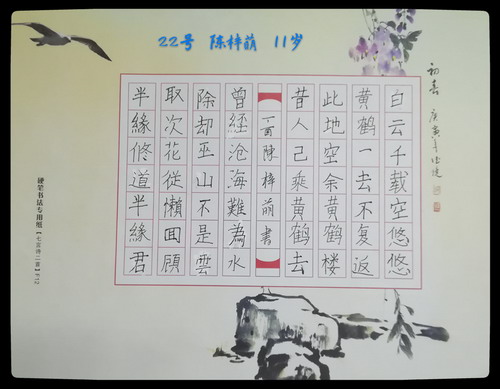 22号 陈梓萌 11岁
白云千载空悠悠
黄鹤一去不复返
此地空余黄鹤楼
昔人己乘黄鹤去
陳梓萌書
曾經沧海難為水
除却巫山不是雲
取次花從懶囬顧
半緣修道半緣君
硬笔书法专用纸【七言诗二首】P12